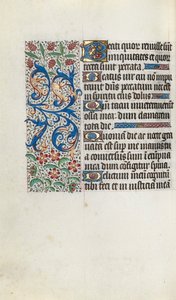 Beati quor remisse sunt
iniquitates et quor
tecta sunt peccata
Beatus vir cui non impu
tavit dns peccatum nec est
in spiritu eius dolus
Qm tacui inveteraverunt
ossa mea dum clamarem
tota die
Quoniam die ac nocte
gravata est sup me manus tua
conversus sum in erumpna
mea dum configitur spina
Delictum meum cognitu
tibi feci et in iusticia mea